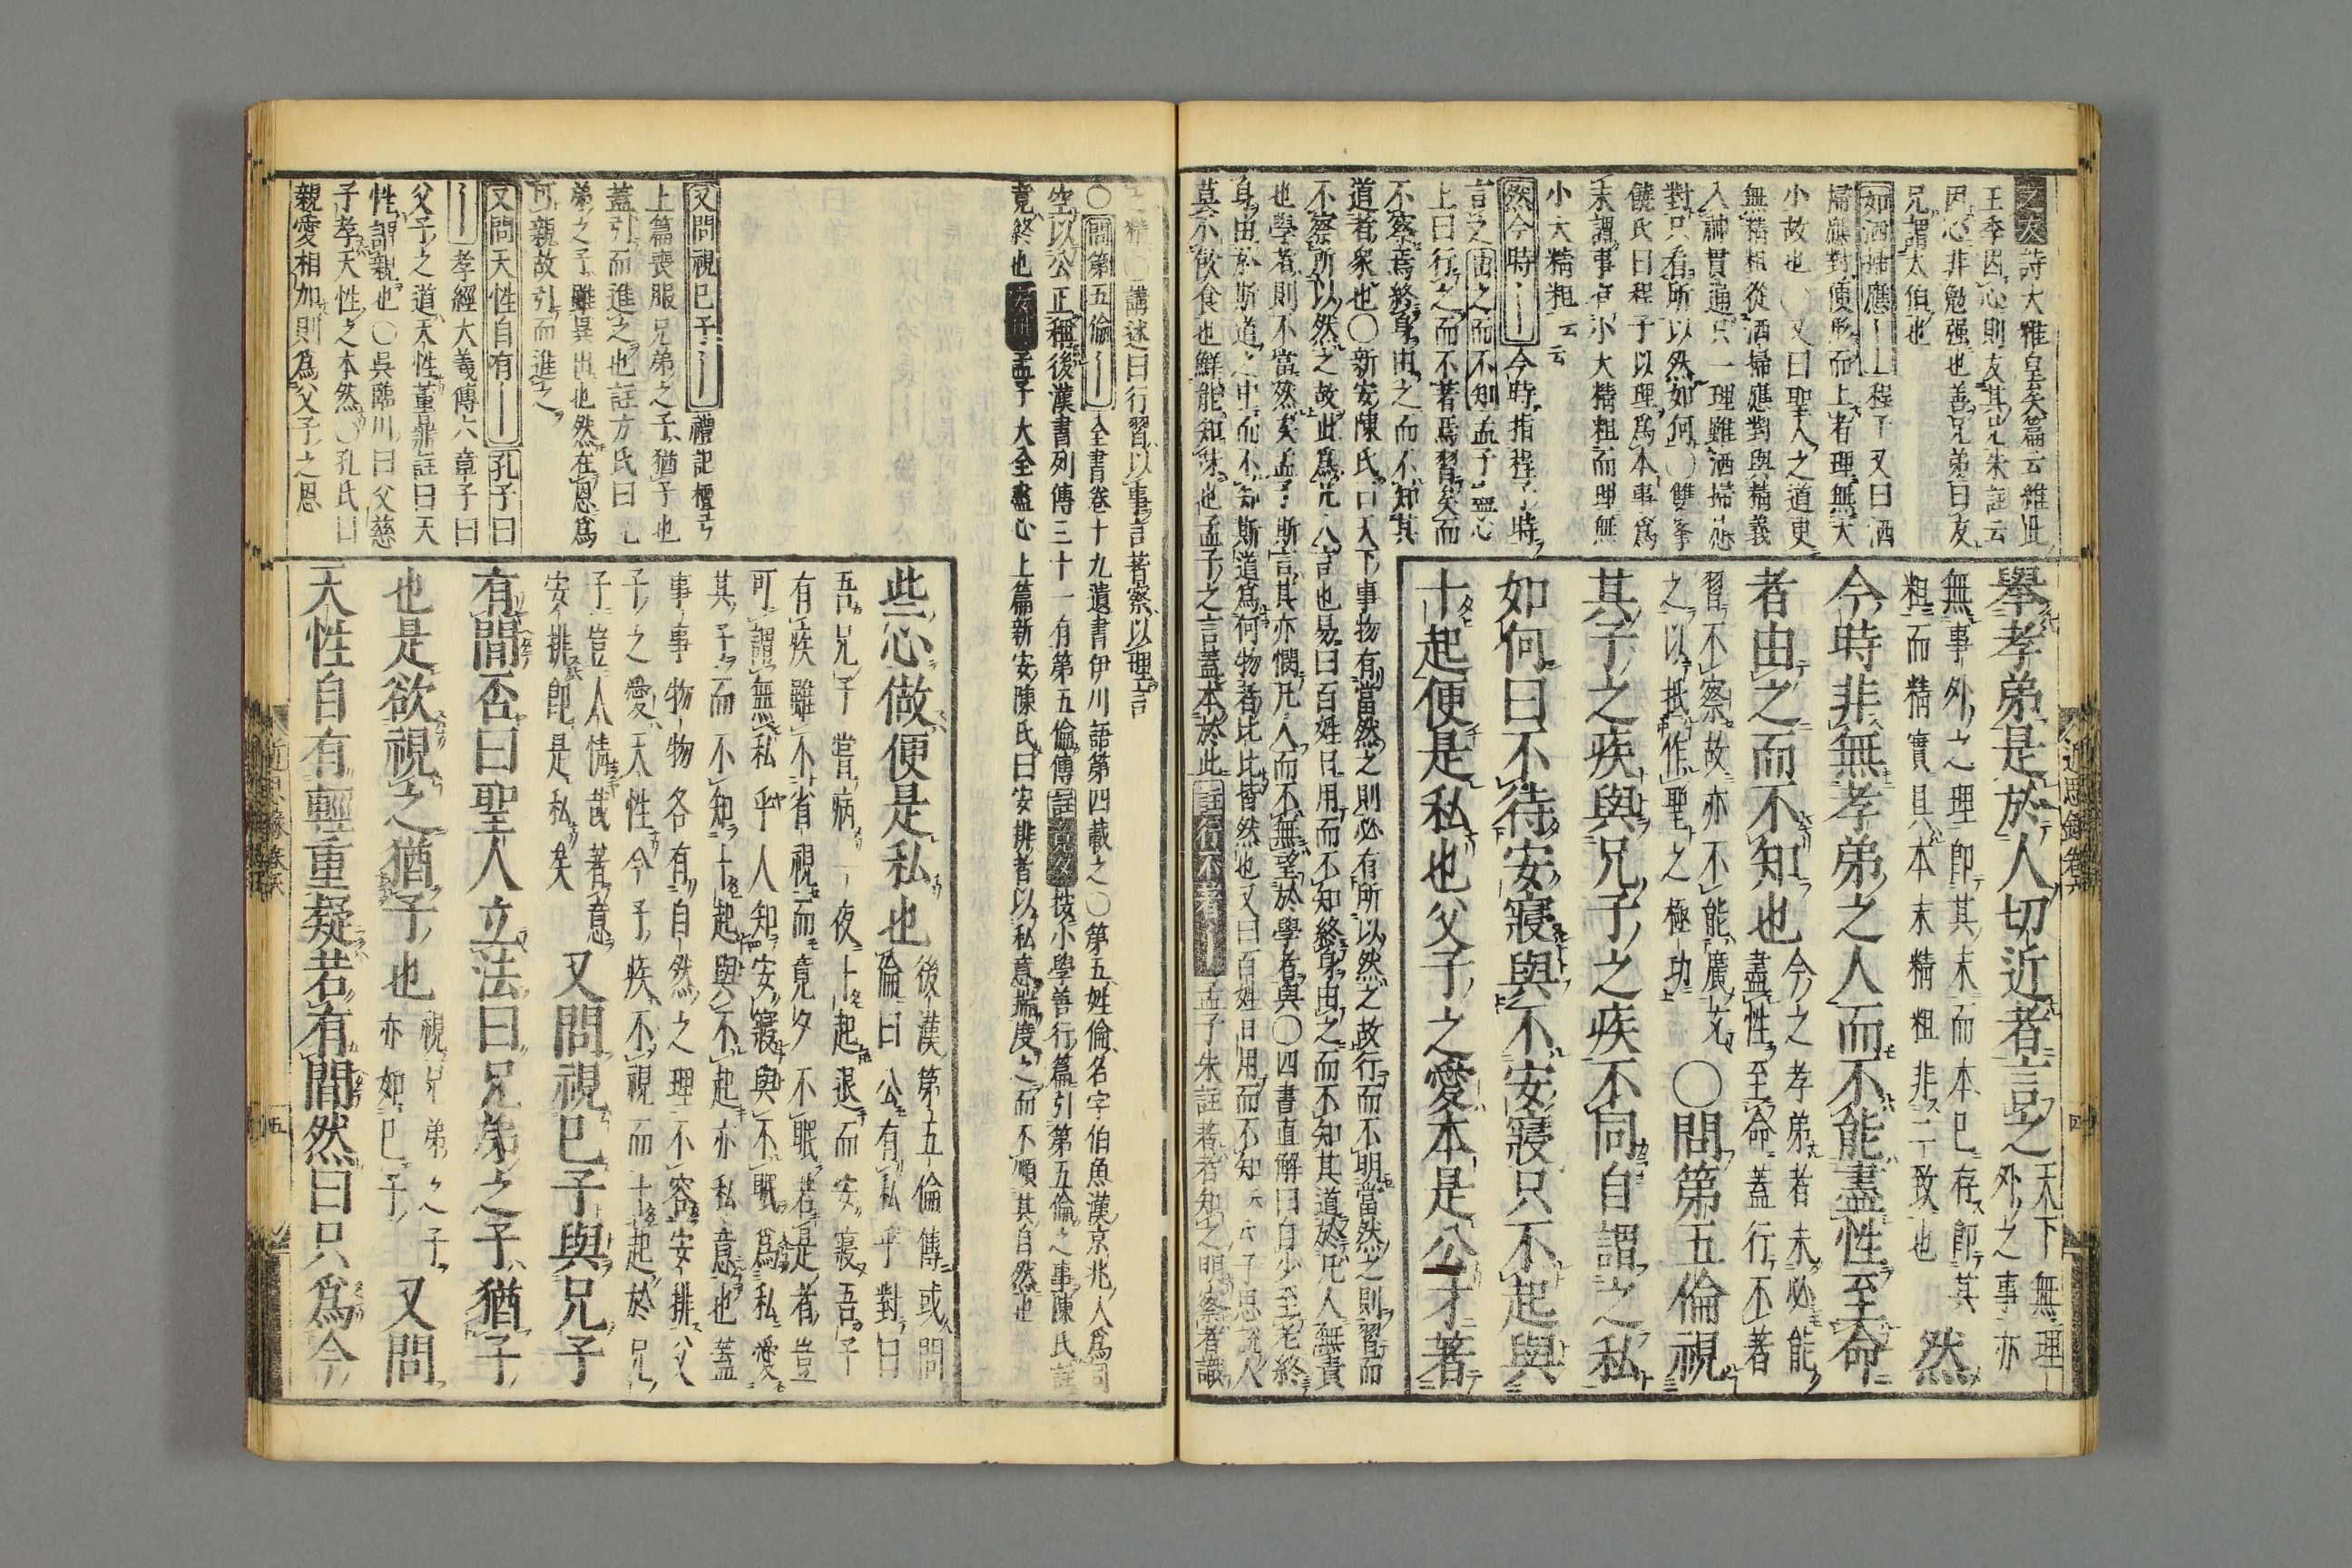 擧孝弟是於人切近者言之天下無理
外之事亦
無事外之理卽其末而本已存卽其
粗而精實具本末精粗非二致也然
今時非無孝弟之人而不能盡性至命
者由之而不知也今之孝弟者未必能
盡性至命蓋行不著
習不察故亦不能廣充
之以抵作聖之極功〇問第五倫視
其子之疾與兄子之疾不同自謂之私
如何曰不待安寢與不安寢只不起與
十起便是私也父子之愛本是公才著
之友詩大雅皇矣篇云維此
王季因心則友其兄朱註云
因心非勉强也善兄弟曰友
兄謂太伯也
如洒掃應程子又曰洒
掃應對便是形而上者理無大
小故也〇又曰聖人之道更
無精粗從洒掃應對與精義
入神貫通只一理雖洒掃應
對只看所以然如何〇雙峯
饒氏曰程子以理爲本事爲
末謂事有小大精粗而理無
小大精粗云云
然今時今時指程子時
言之由之而不知孟子盡心
上曰行之而不著焉習矣而
不察焉終身由之而不知其
道者衆也〇新安陳氏曰天下事物有當然之則必有所以然之故行而不明當然之則習而
不察所以然之故此爲凡人言也易曰百姓日用而不知終身由之而不知其道於凡人無責
也學者則不當然矣孟子斯言其亦憫凡人而不無望於學者與〇四書直解曰自少至老終
身由於斯道之中而不知斯道爲何物者比比皆然也又曰百姓日用而不知
莫不飮食也鮮能知味也孟子之言蓋本於此註行不著孟子朱註著者知之明察者識
之精〇講述曰行習以事言著察以理言
〇問第五倫全書卷十九遺書伊川語第四載之〇第五姓倫名字伯魚漢京兆人爲司
空以公正稱後漢書列傳三十一有第五倫傳註按小學善行篇引第五倫之事陳氏註
竟終也安排孟子大全盡心上篇新安陳氏曰安排者以私意揣度之而不順其自然也
些心做便是私也後漢第五倫傳或問
倫曰公有私乎對曰
吾兄子嘗病一夜十起退而安寢吾子
有疾雖不省視而竟夕不眠若是者豈
可謂無私乎人知安寢與不眠爲私愛
其子而不知十起與不起亦私意也蓋
事事物物各有自然之理不容安排父
子之愛天性今子疾不視而十起於兄
子豈人情哉著意
安排卽是私矣又問視已子與兄子
有間否曰聖人立法曰兄弟之子猶子
也是欲視之猶子也視兄弟之子
亦如已子又問
天性自有輕重疑若有間然曰只爲今
又問視已子禮記檀弓
上篇喪服兄弟之子猶子也
蓋引而進之也註方氏曰兄
弟之子雖異出也然在恩爲
可親故引而進之
又問天性自有孔子曰
孝經大義傳六章子曰
父子之道天性董鼎註曰天
性謂親也〇吳臨川曰父慈
子孝天性之本然〇孔氏曰
親愛相加則爲父子之恩
近思錄卷六
四
近思錄卷六
五